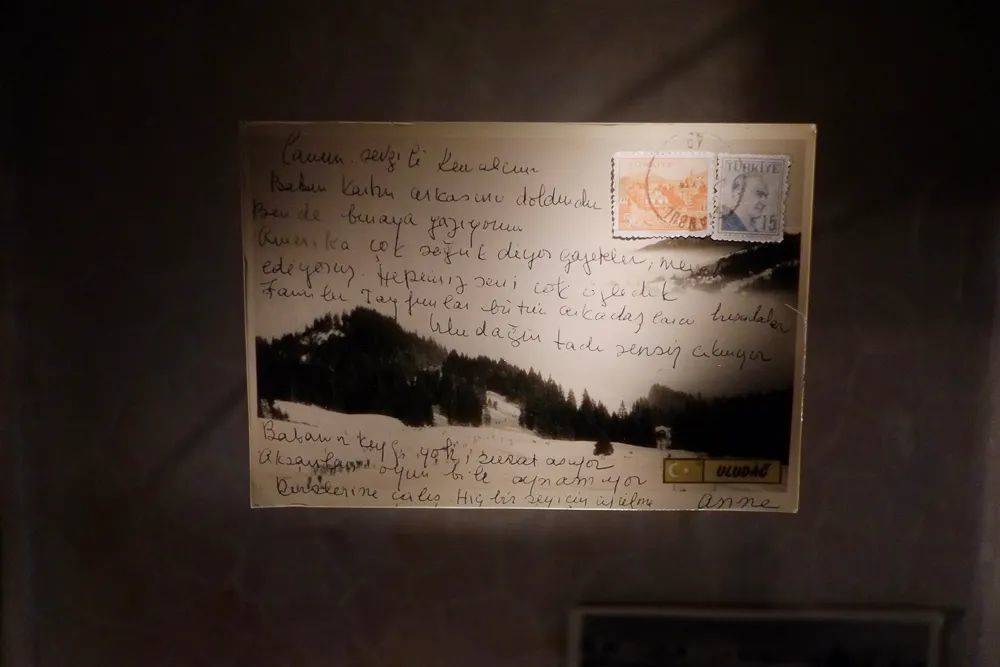 Canım sevgili Kemalcim
Baban kartın arkasını doldurdu
Ben de buraya yazıyorum
Amerika çok soğuk diyor gazeteler, merak
ediyoruz. Hepimiz seni çok özledik
Tayfunlar bütün arkadaşların buradalar
Uludağın tadı sensiz çıkmıyor
TÜRKİYE
5
TÜRKİYE
15
Babanın keyfi yok, surat asıyor
Akşamları oyun bile oynamıyor
Derslerine çalış. Hiç bir şey için üzülme
anne
ULUDAĞ